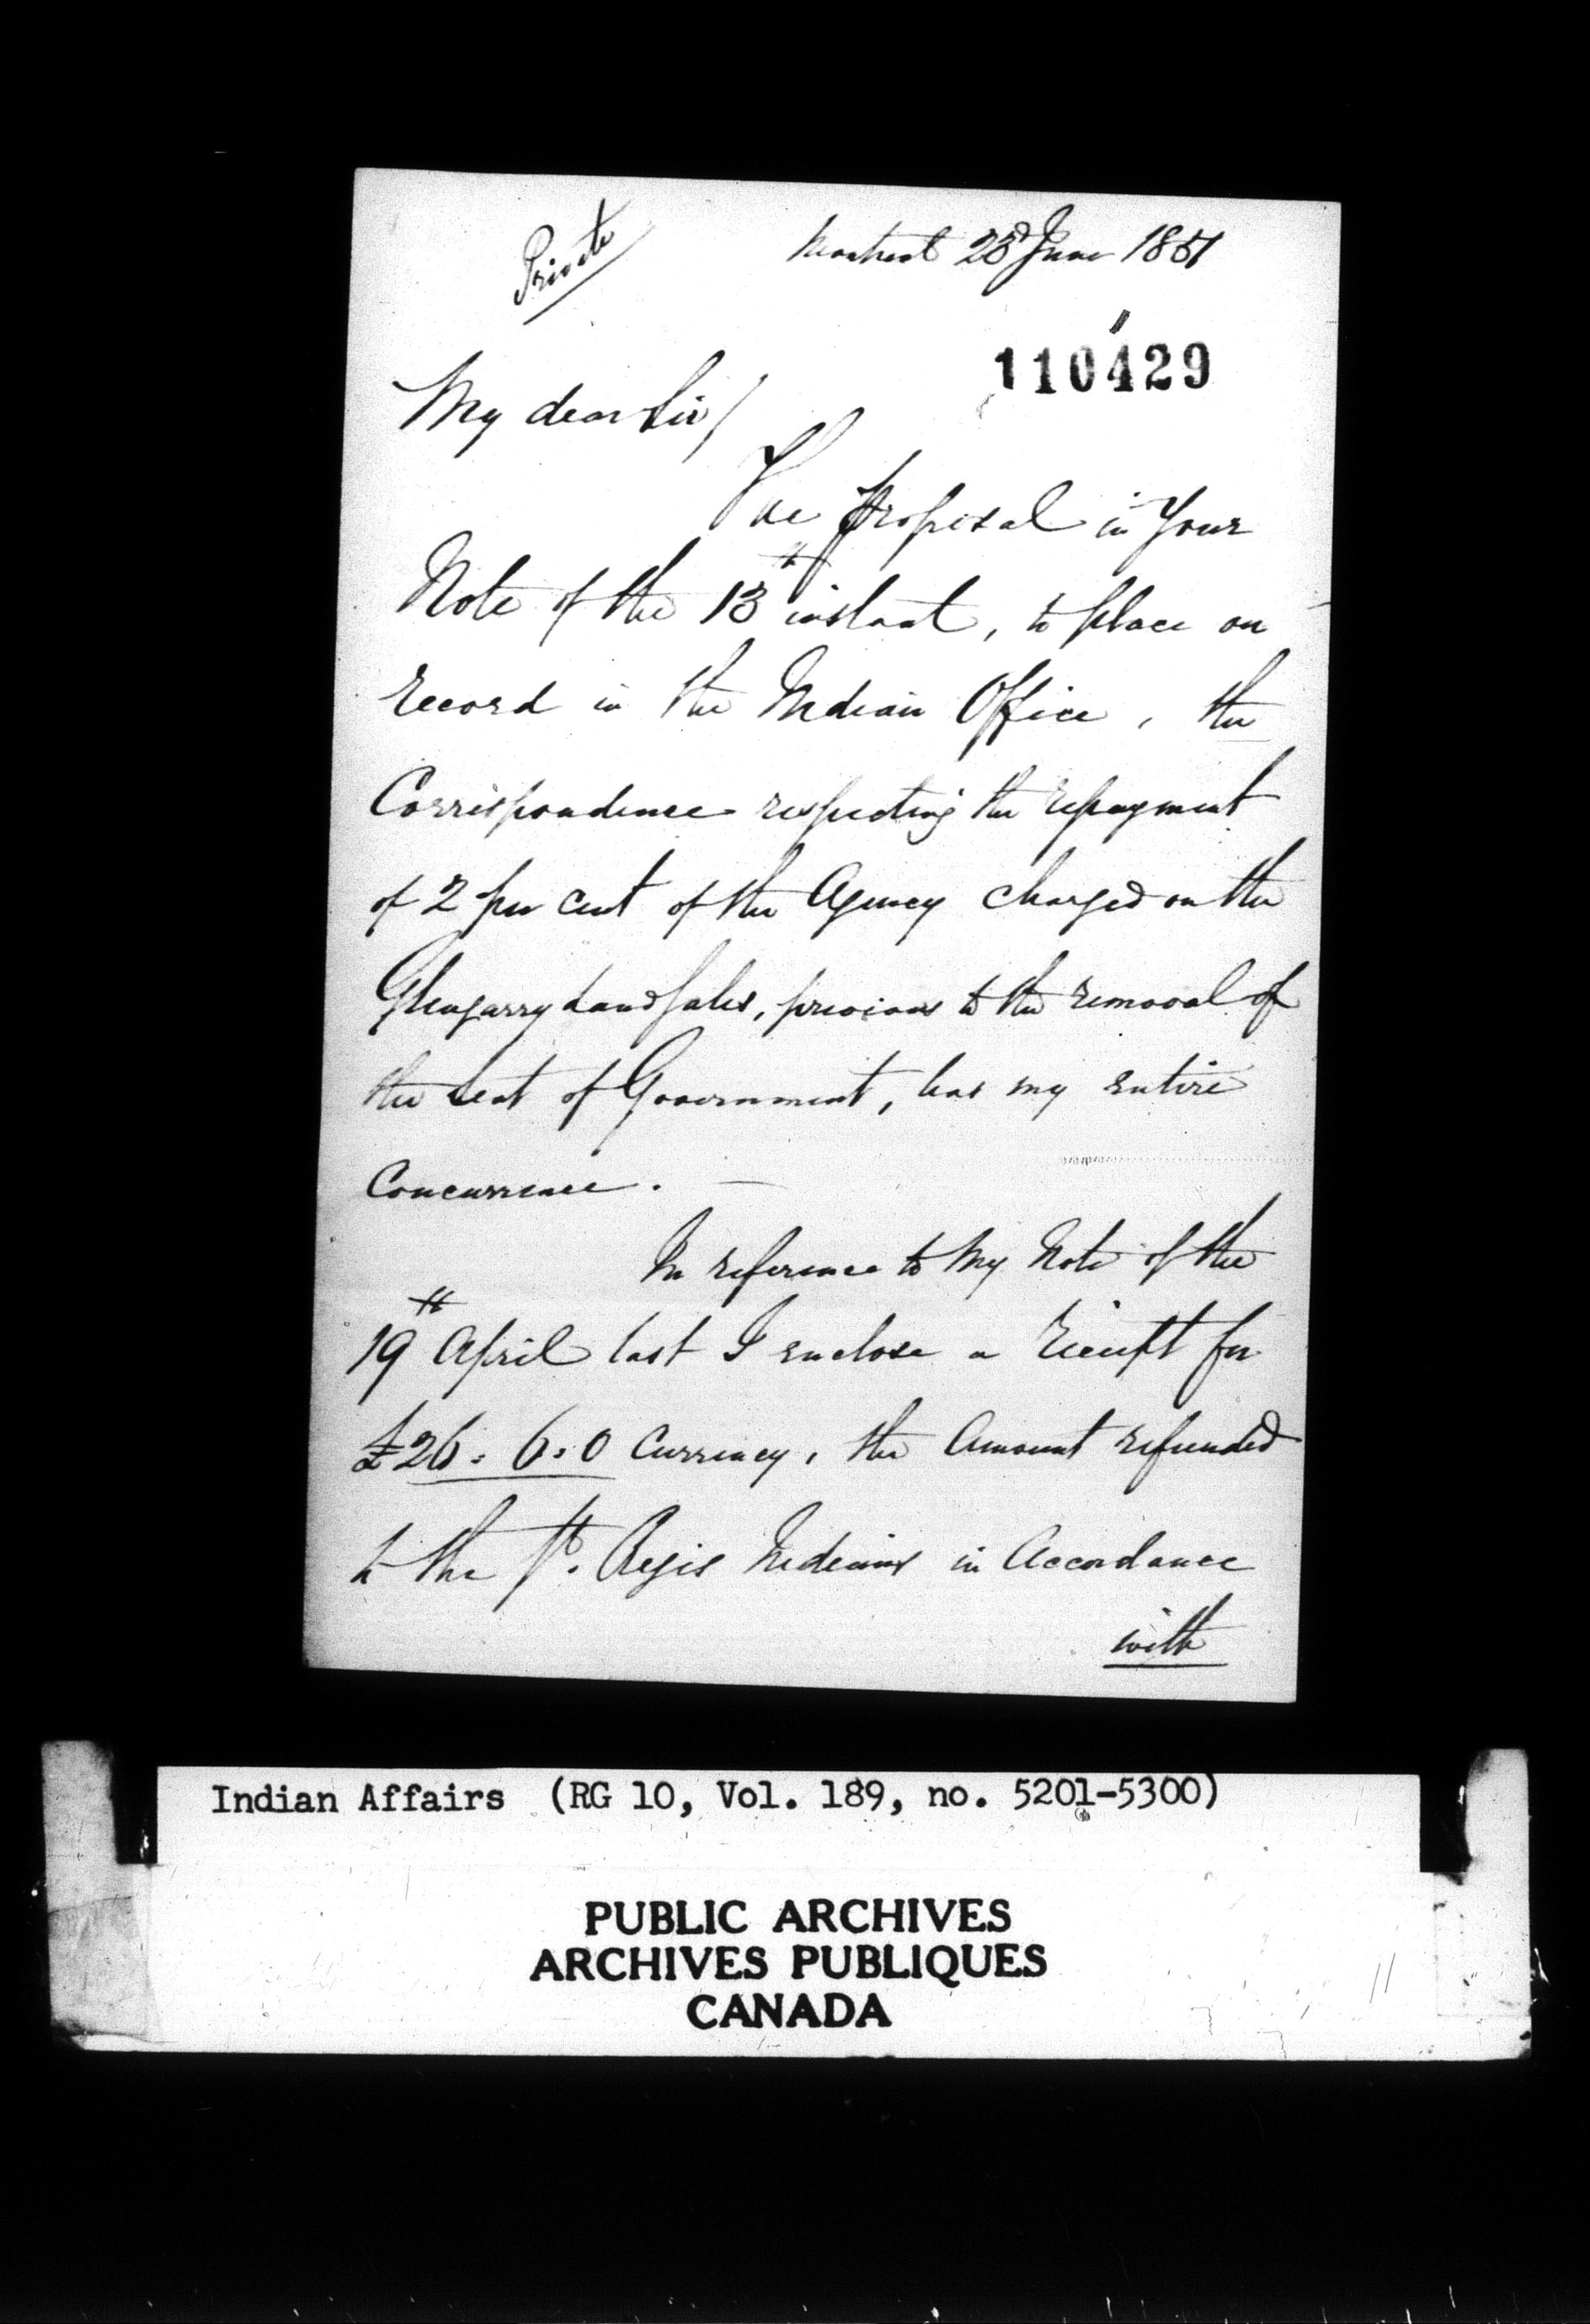 Private
Montreal 23d June 1851
110429
My dear Sir/
The proposal in Your
Note of the 13th instant, to place on
record in the Indian Office, the
Correspondence respecting the repayment
of 2 per cent of the Agency charged on the
Glengarry Land Sales, previous to the removal of
the Seat of Government, has my entire
Concurrence.
In reference to My Note of the
19th April last I enclose a receipt for
£26:6:0 Currency, the Amount refunded
to the St. Regis Indians in Accordance
with
Indian Affairs (RG 10, Vol. 189, no. 5201-5300)
PUBLIC ARCHIVES
ARCHIVES PUBLIQUES
CANADA